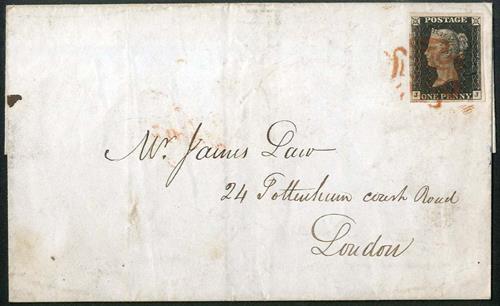 POSTAGE
J J
ONE PENNY
Mr. James Law
24 Tottenham court Road
London